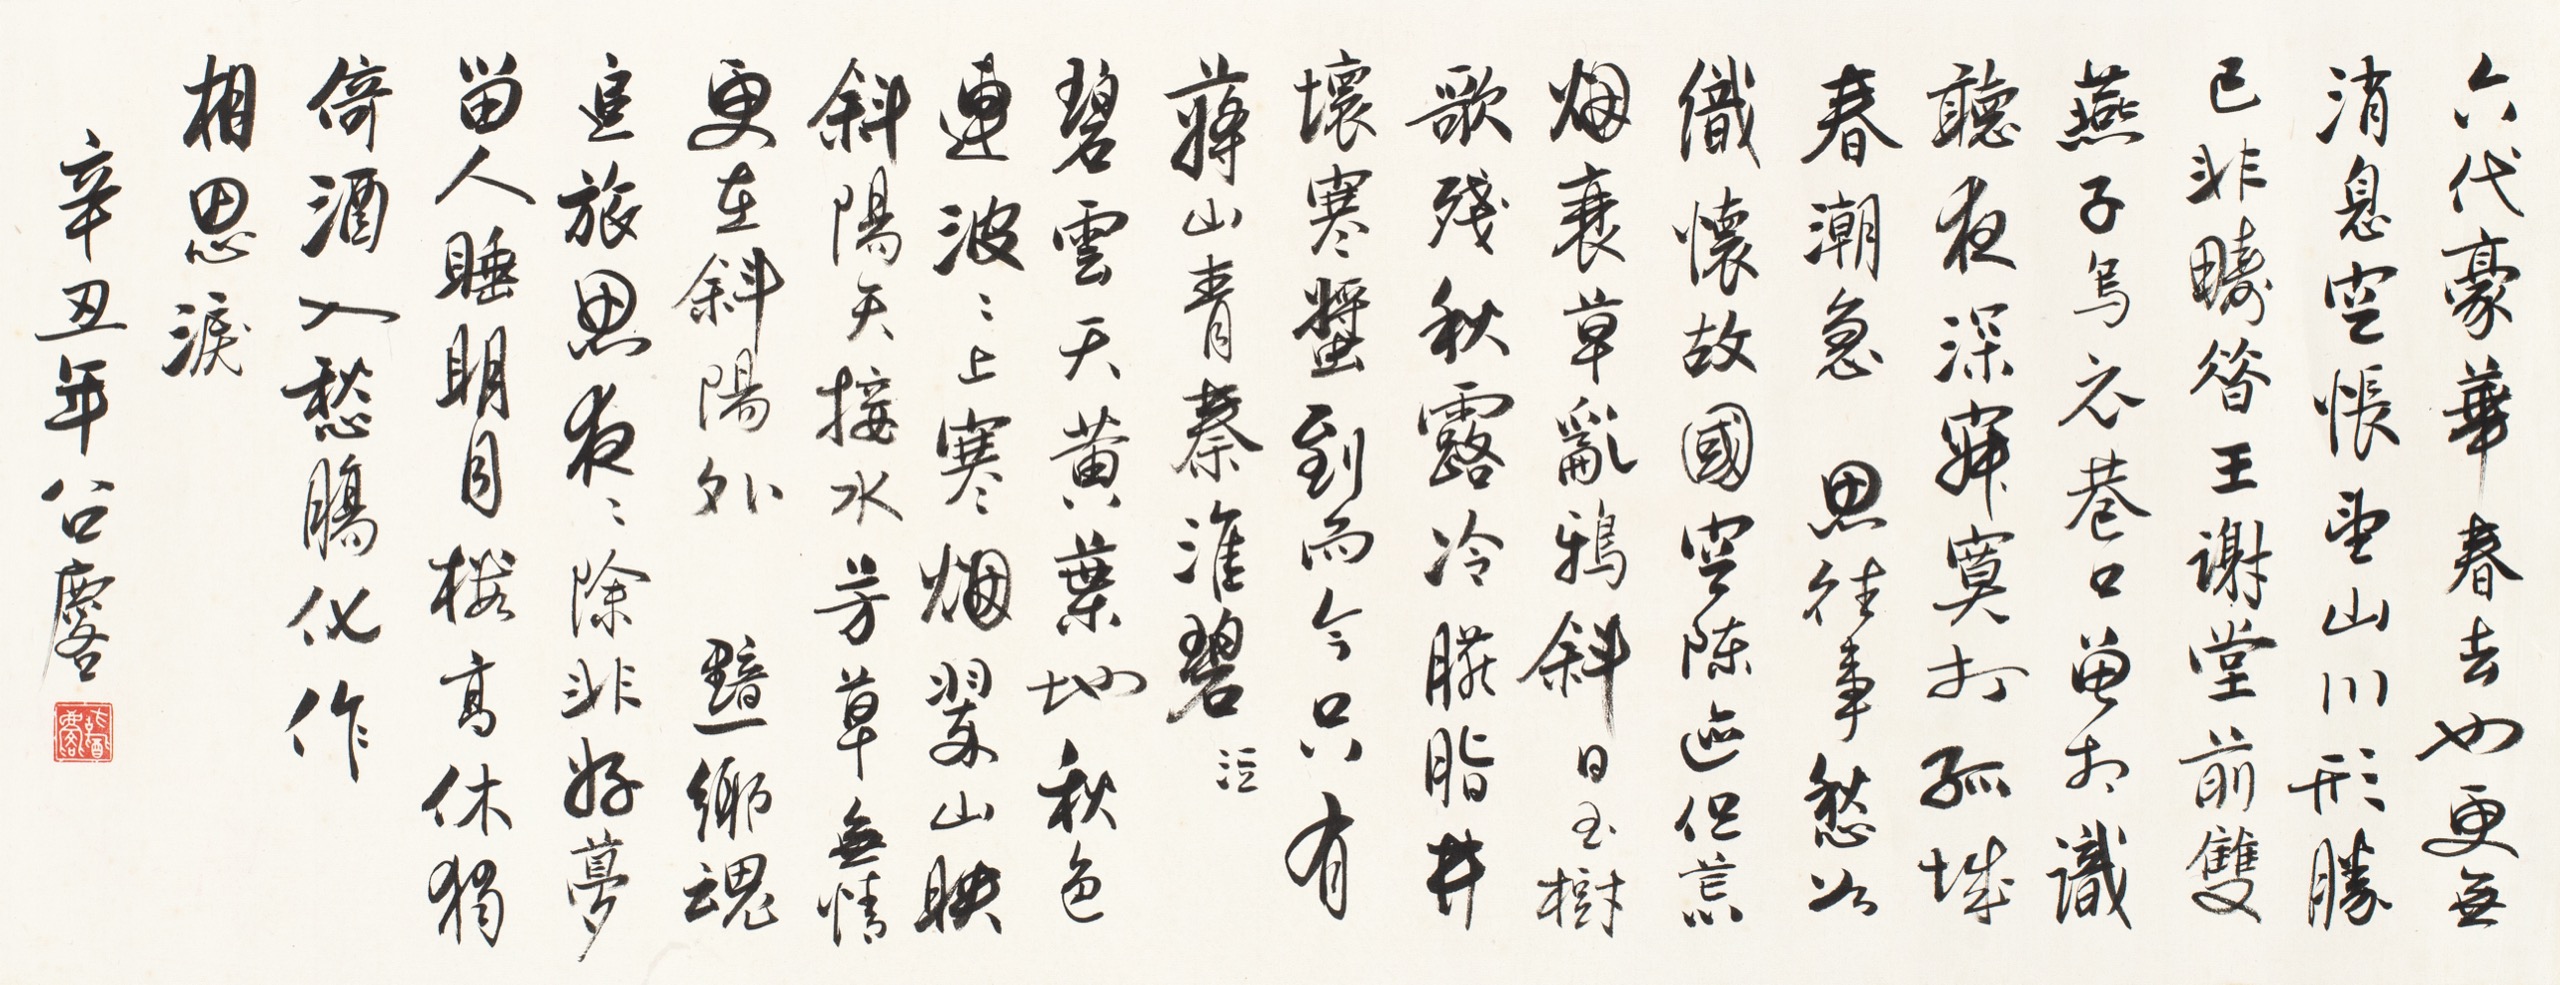 六代豪華春去也更無
消息空悵望山川形勝
已非疇昔王謝堂前雙
燕子烏衣巷口曾相識
聽夜深寂寞打孤城
春潮急 思往事愁如
織懷故國空陳迹但荒
烟衰草亂鴉斜日玉樹
歌殘秋露冷胭脂井
壞寒螿到而今只有
蔣山青秦淮碧 泣
碧雲天黃葉地秋色
連波〻上寒烟翠山映
斜陽天接水芳草無情
更在斜陽外 黯鄉魂
追旅思夜〻除非好夢
留人睡明月樓高休獨
倚酒入愁腸化作
相思淚
辛丑年